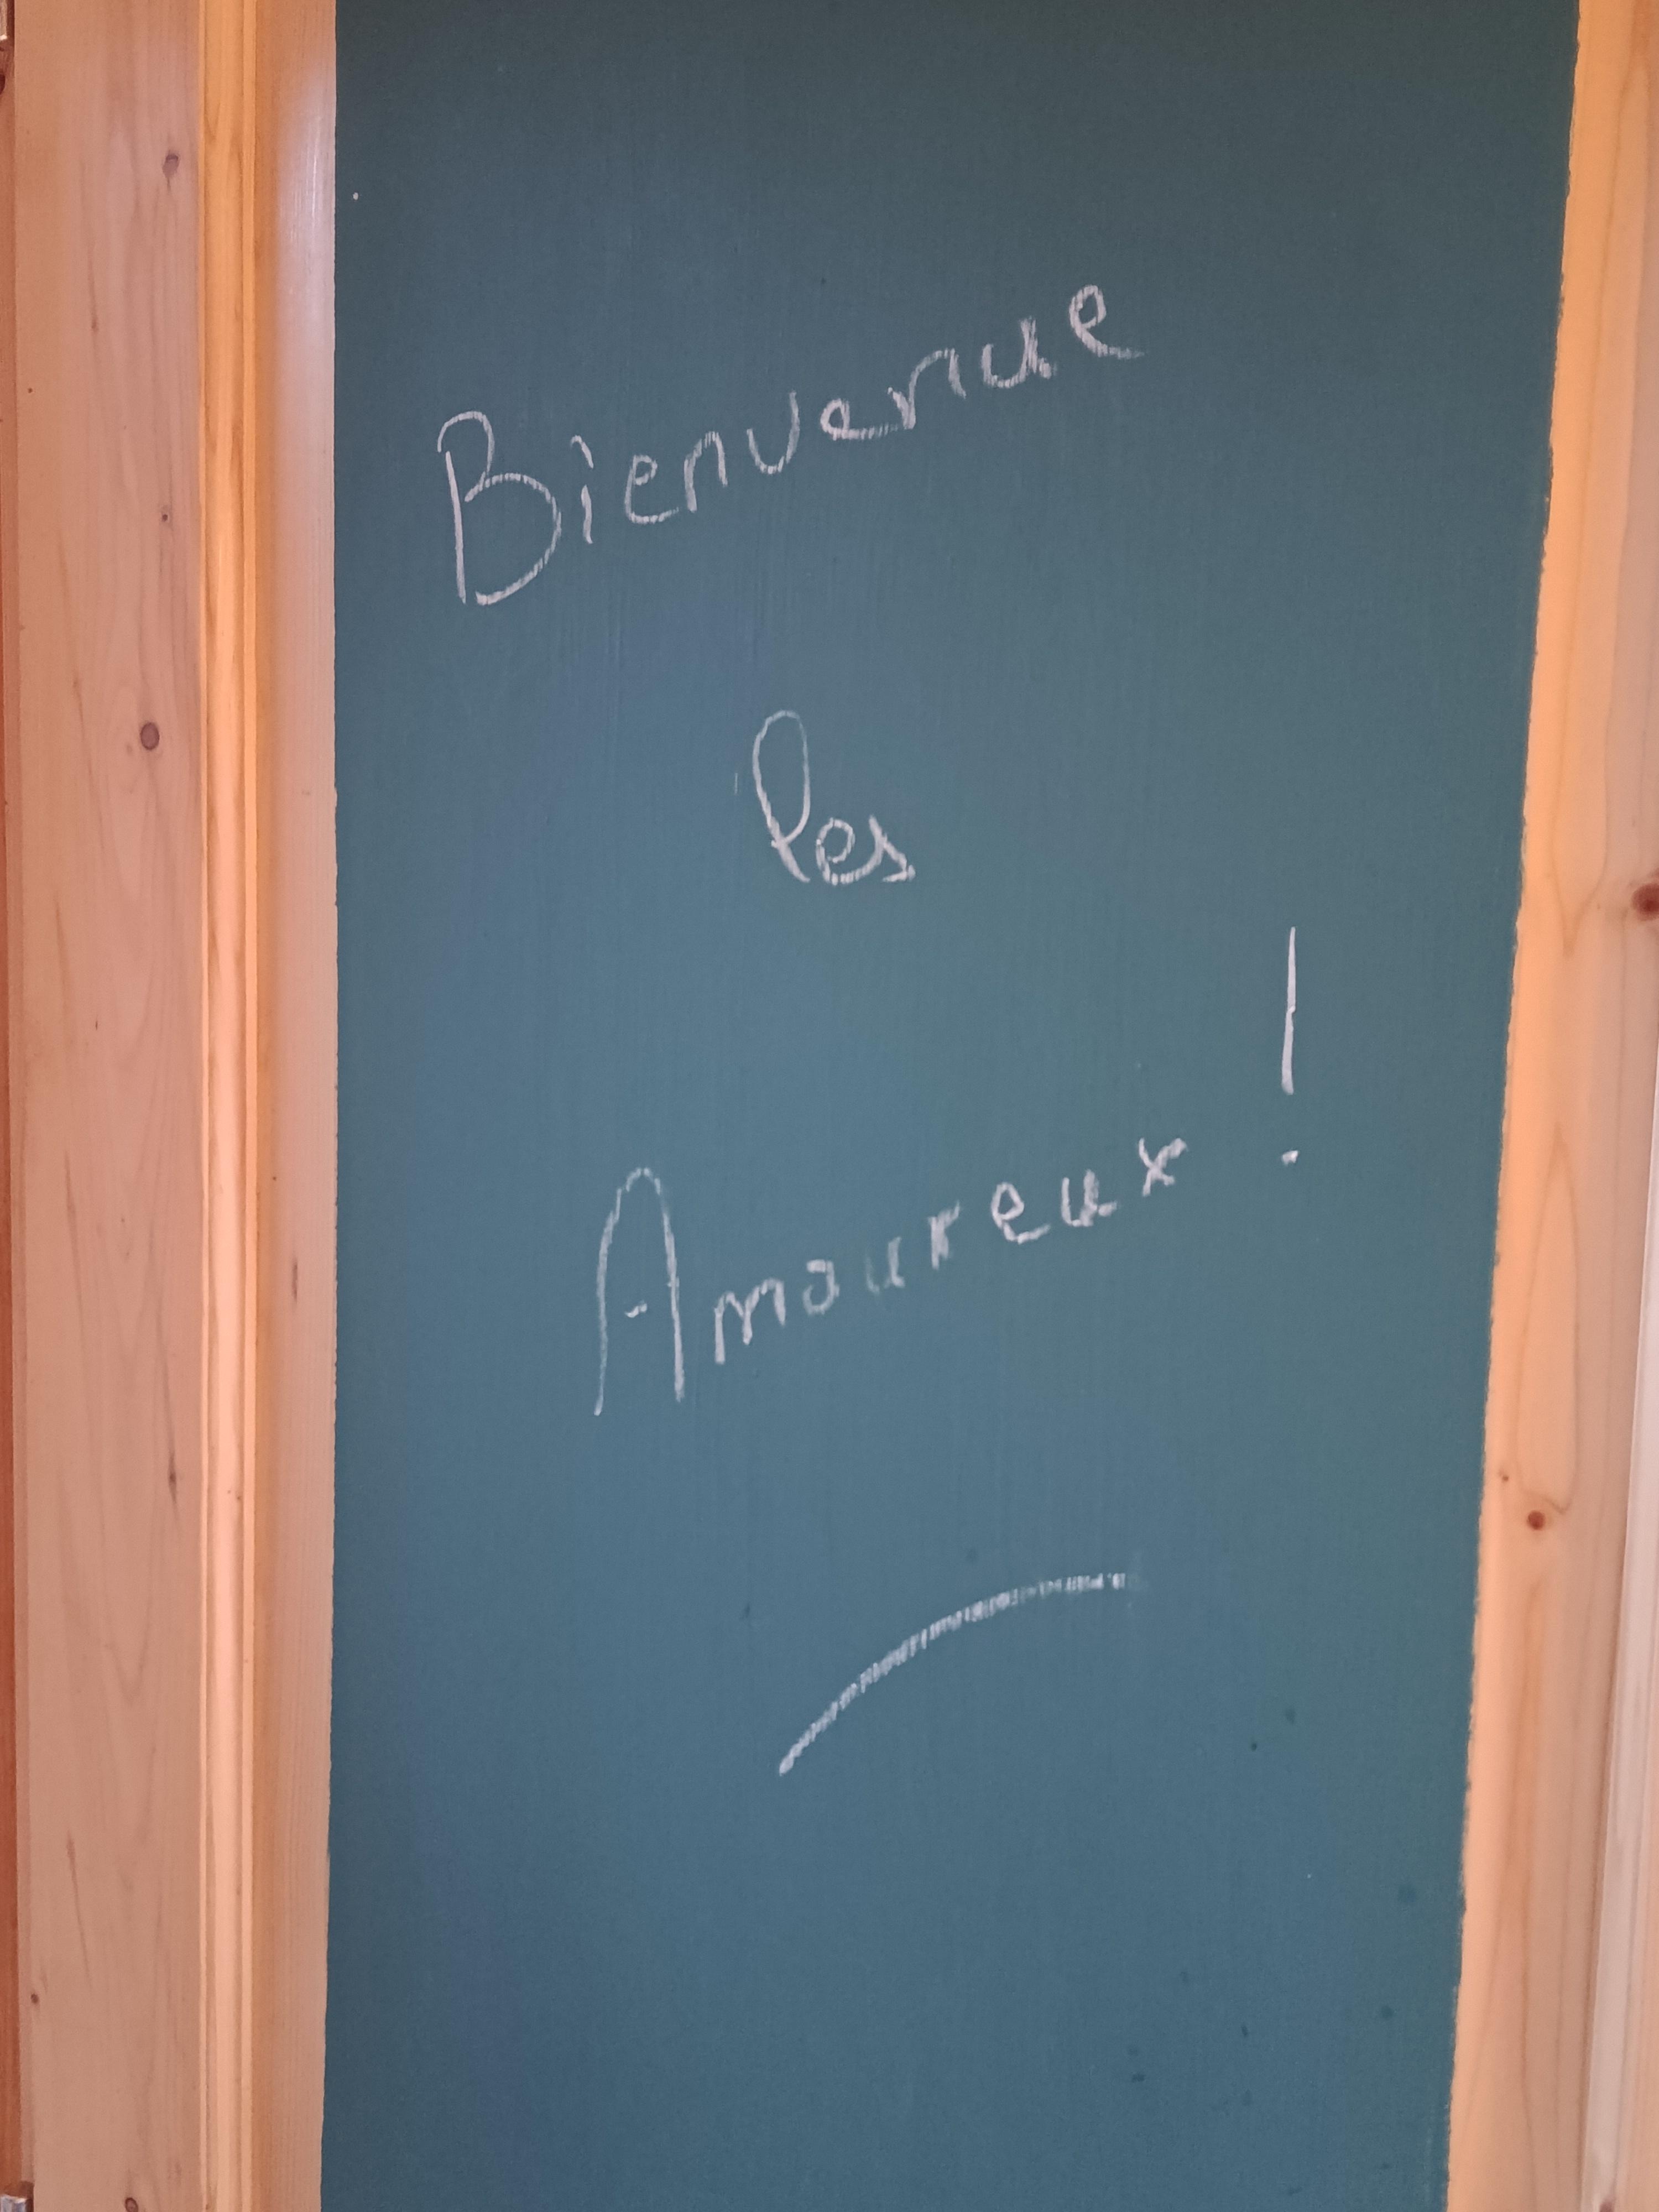 Bienvenue
les
Amoureux !